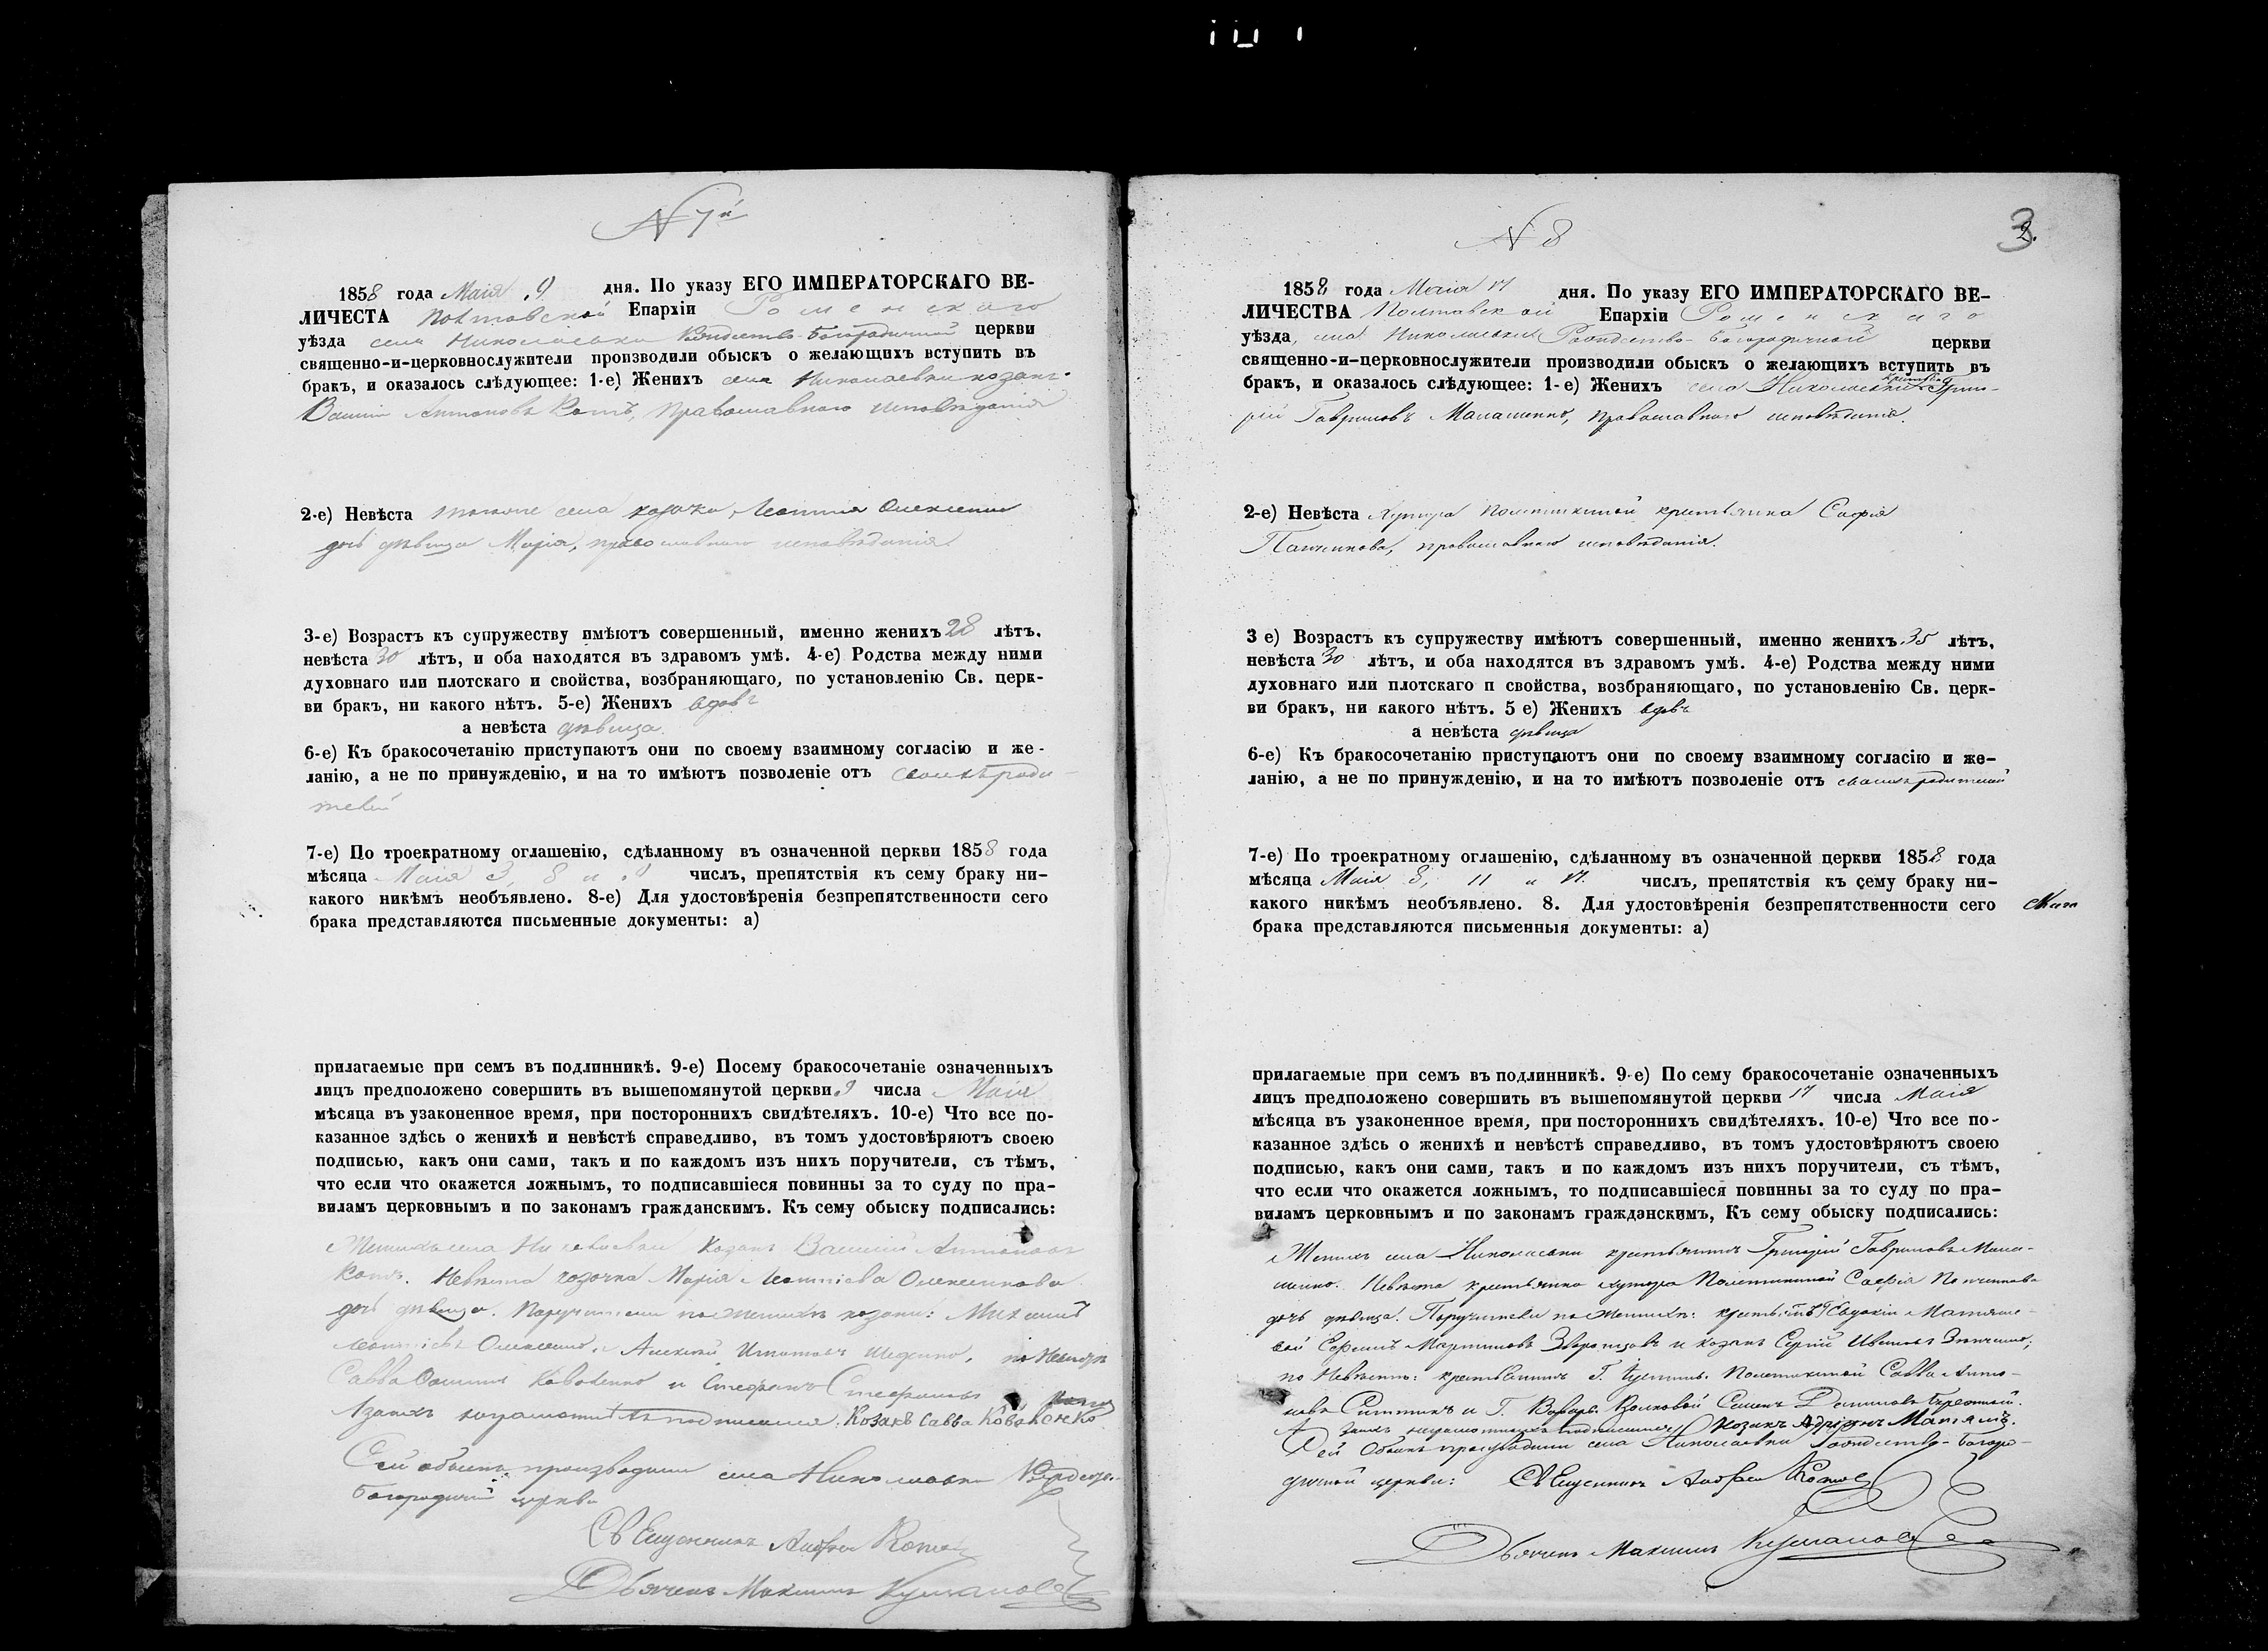 N 7й
1858 года Маія 9 дня. По указу ЕГО ИМПЕРАТОРСКАГО ВЕ-
ЛИЧЕСТА Полтавской Епархіи Роменскаго
уѣзда села Николаевки Рождество-Богородичной церкви
священно-и-церковнослужители производили обыскъ о желающихъ вступить въ
бракъ, и оказалось слѣдующее: 1-е) Женихъ села Николаевки козакъ
Василій Антоновъ Котъ, православнаго исповѣданія
2-е) Невѣста села козачка
дочь дѣвица Марія, православнаго исповѣданія
3-е) Возрастъ къ супружеству имѣютъ совершенный, именно женихъ 28 лѣтъ.
невѣста 30 лѣтъ, и оба находятся въ здравомъ умѣ. 4-е) Родства между ними
духовнаго или плотскаго и свойства, возбраняющаго, по установленію Св. церк-
ви бракъ, ни какого нѣтъ. 5-е) Женихъ вдовъ
а невѣста дѣвица.
6-е) Къ бракосочетанію приступаютъ они по своему взаимному согласію и же-
ланію, а не по принужденію, и на то имѣютъ позволеніе отъ своихъ роди-
телей
7-е) По троекратному оглашенію, сдѣланному въ означенной церкви 1858 года
мѣсяца Маія 3, 8 и 9 числъ, препятствія къ сему браку ни-
какого никѣмъ необъявлено. 8-е) Для удостовѣренія безпрепятственности сего
брака представляются письменные документы: а)
прилагаемые при семъ въ подлинникѣ. 9-е) Посему бракосочетаніе означенныхъ
лицъ предположено совершить въ вышепомянутой церкви 9 числа Маія
мѣсяца въ узаконенное время, при постороннихъ свидѣтеляхъ. 10-е) Что все по-
казанное здѣсь о женихѣ и невѣстѣ справедливо, въ томъ удостовѣряютъ своею
подписью, какъ они сами, такъ и по каждомъ изъ нихъ поручители, съ тѣмъ,
что если что окажется ложнымъ, то подписавшіеся повинны за то суду по пра-
виламъ церковнымъ и по законамъ гражданскимъ. Къ сему обыску подписались:
Женихъ села Николаевки козакъ Василій Антоновъ
Котъ. Невѣста козачка Марія Леонтіева Олексіенкова
дочь дѣвица. Поручители по женихѣ козаки:
Савва Коваленко и Стефанъ Стефановъ
Козакъ Савва Коваленко
Сей обыскъ производили села Николаевки Рождество-
Богородичной церкви
Священникъ Андрей
Дьячекъ Максимъ
N 8
3
2.
1858 года Маія 17 дня. По указу ЕГО ИМПЕРАТОРСКАГО ВЕ-
ЛИЧЕСТВА Полтавской Епархіи Роменскаго
уѣзда, села Николаевки Рождество-Богородичной церкви
священно-и-церковнослужители производили обыскъ о желающихъ вступить въ
бракъ, и оказалось слѣдующее: 1-е) Женихъ села Николаевки Григо-
рій Гавриловъ Малашенко, православнаго исповѣданія.
2-е) Невѣста Хутора крестьянка Софія
Панченкова, православнаго исповѣданія.
3 е) Возрастъ къ супружеству имѣютъ совершенный, именно женихъ 35 лѣтъ,
невѣста 30 лѣтъ, и оба находятся въ здравомъ умѣ. 4-е) Родства между ними
духовнаго или плотскаго п свойства, возбраняющаго, по установленію Св. церк-
ви бракъ, ни какого нѣтъ. 5 е) Женихъ вдовъ
а невѣста дѣвица
6-е) Къ бракосочетанію приступаютъ они по своему взаимному согласію и же-
ланію, а не по принужденію, и на то имѣютъ позволеніе отъ своихъ родителей
7-е) По троекратному оглашенію, сдѣланному въ означенной церкви 1858 года
мѣсяца Маія 8, 11 и 17. числъ, препятствія къ сему браку ни-
какого никѣмъ необъявлено. 8. Для удостовѣренія безпрепятственности сего
брака представляются письменныя документы: а)
прилагаемые при семъ въ подлинникѣ. 9-е) По сему бракосочетаніе означенныхъ
лицъ предположено совершить въ вышепомянутой церкви 17 числа Маія
мѣсяца въ узаконенное время, при постороннихъ свидѣтеляхъ. 10-е) Что все по-
казанное здѣсь о женихѣ и невѣстѣ справедливо, въ томъ удостовѣряютъ своею
подписью, какъ они сами, такъ и по каждомъ изъ нихъ поручители, съ тѣмъ,
что если что окажется ложнымъ, то подписавшіеся повинны за то суду по пра-
виламъ церковнымъ и по законамъ гражданскимъ, Къ сему обыску подписались:
Женихъ села Николаевки крестьянинъ Григорій Гавриловъ Мала-
шенко. Невѣста крестьянка хутора Софія Панченкова
дочь дѣвица. Поручители по женихѣ:
и козакъ Сергій Ивановъ
по Невѣстѣ: Савва Анто-
новъ
Козакъ
Сей Обыскъ производили села Николаевки Рождество-Богоро-
дичной церкви: Священникъ Андрей
Дьячекъ Максимъ